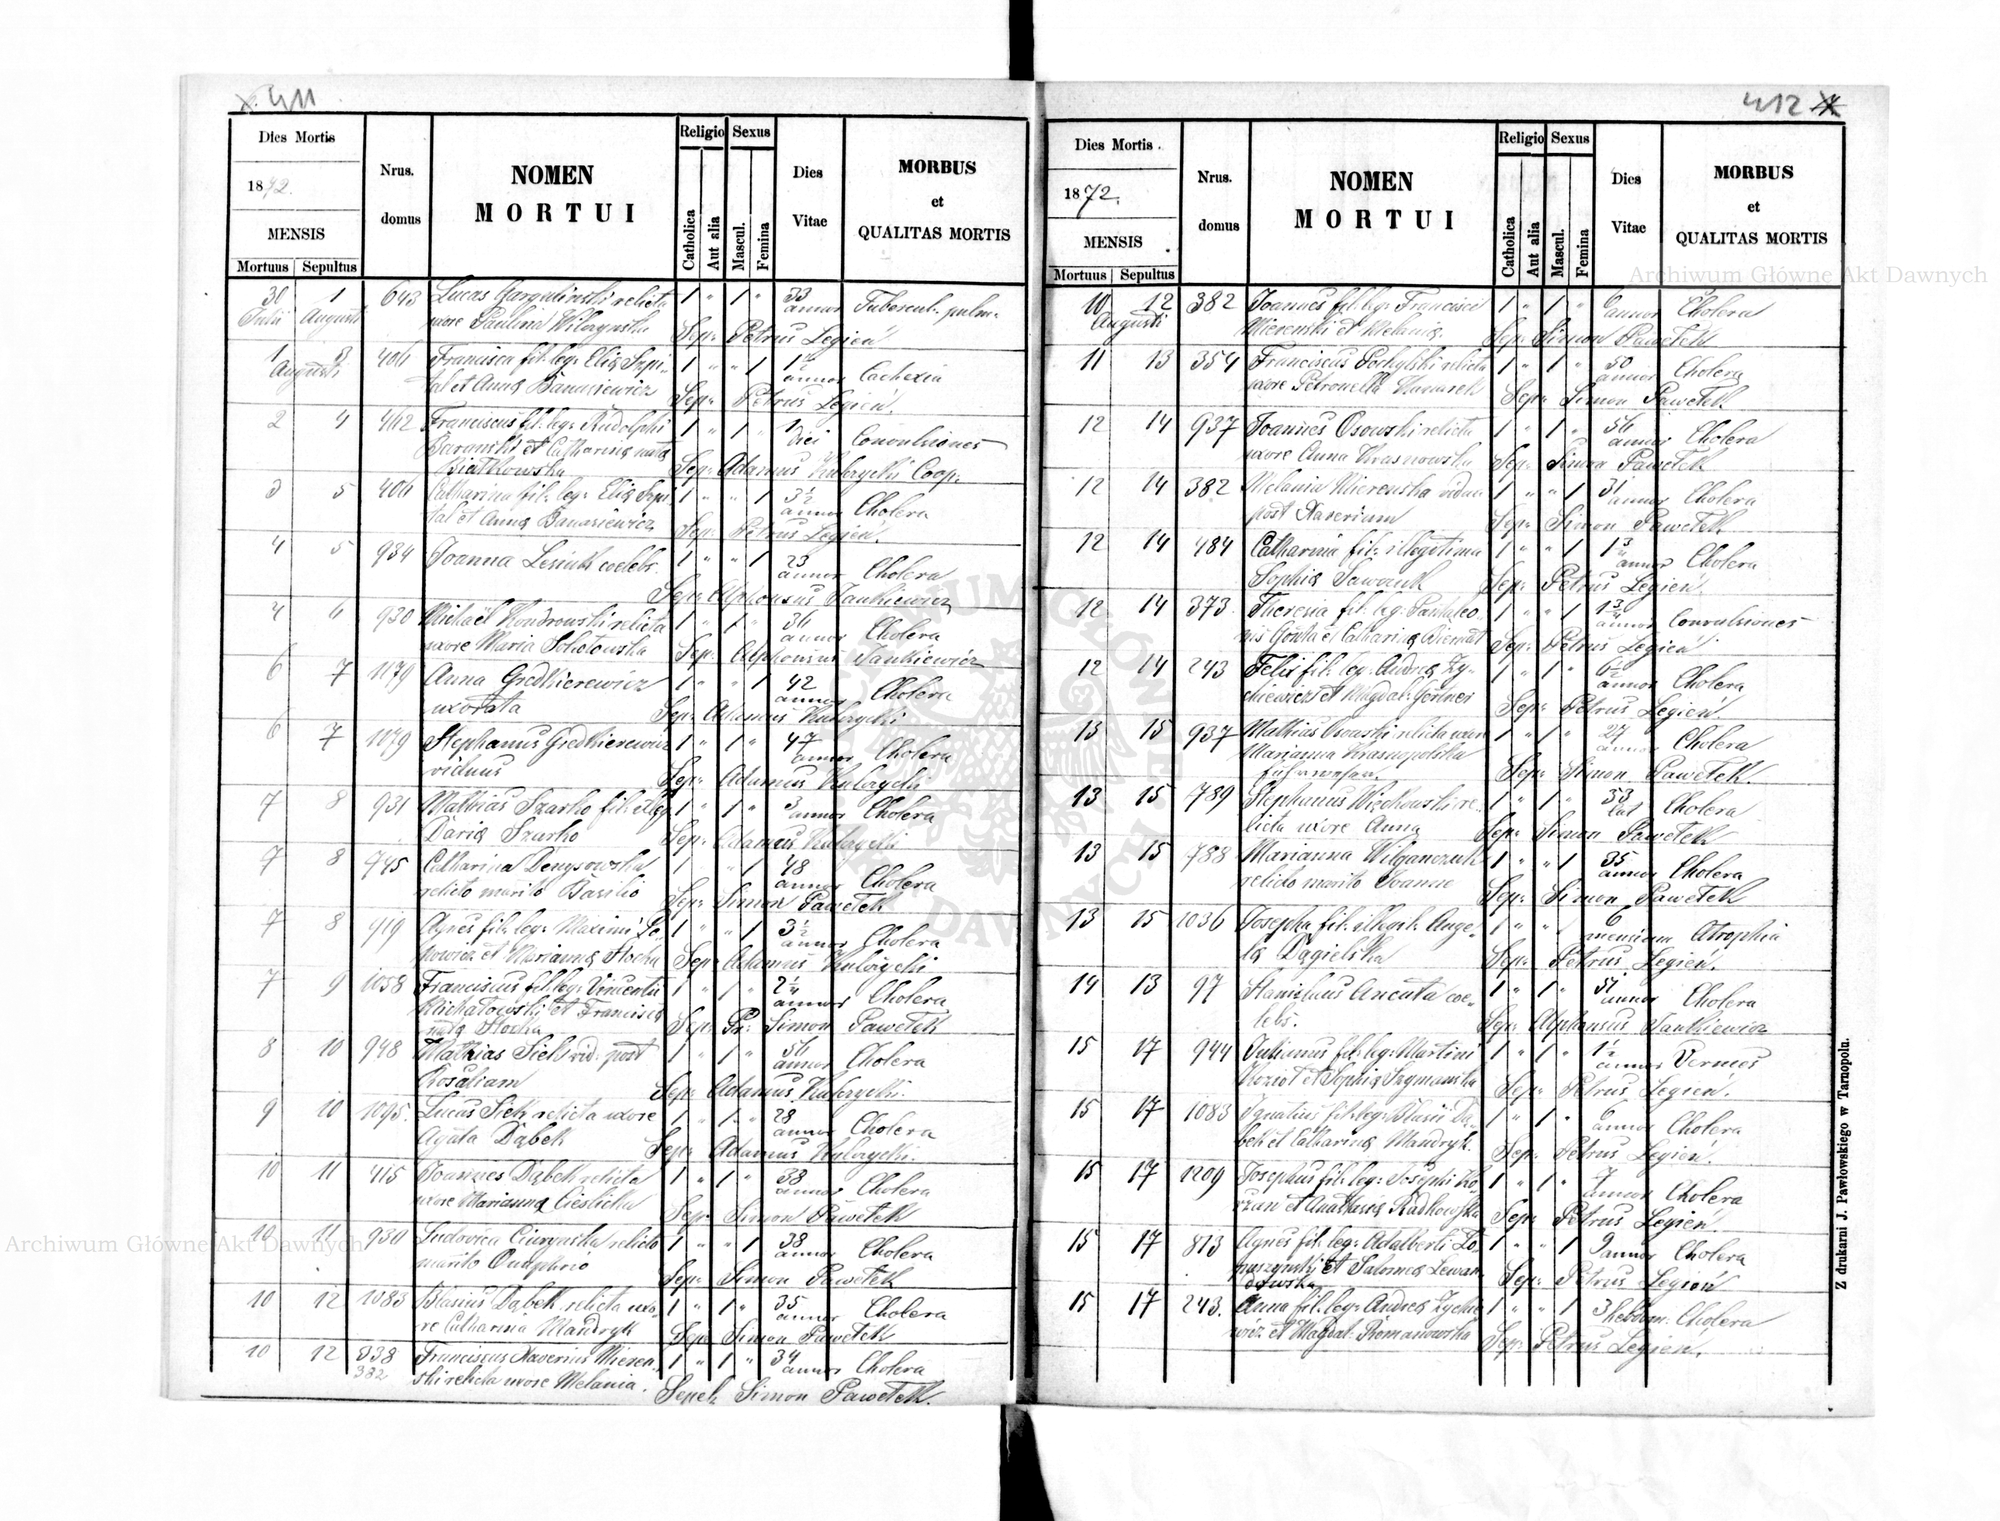 411
Dies Mortis
1872.
MENSIS
Mortuus Sepultus
Nrus. domus
NOMEN MORTUI
Religio
Catholica
Aut alia
Sexus
Mascul.
Femina
Dies Vitae
MORBUS et QUALITAS MORTIS
30 Julii 1 Augusti 643 Lucas relicta 1 " 1 " 33 annor Tubercul. pulm.
uxore Paulina Sep: Petrus Legień
1 3 Augusti Francisca fil: leg: Eliæ Szpi- 1 " " 1 annor Cachexia
tal et Anna Banasiewicz Sep: Petrus Legień.
2 4 412 Franciscus fil: leg: Rudolphi 1 " 1 " 1 diei Convulsiones
Baranski et Catharina nata
Białkowska Sep: Adamus Kubrycki Coop:
3 5 Catharina fil: leg: Eliæ Szpi- 1 " " 1 3½ annor Cholera
tal et Anna Banasiewicz Sep: Petrus Legień.
4 5 934 Joanna Lesiuk coelebs 1 " " 1 23 annor Cholera
Sep: Alphonsus Jankiewicz
4 6 930 Michaël Kondrowski relicta 1 " 1 " 36 annor Cholera
uxore Maria Sokołowska Sep: Alphonsus Jankiewicz
6 7 1179 Anna Gredkierewicz 1 " " 1 42 annor Cholera
uxorata Sep: Adamus Kubrycki
6 7 1179 Stephanus Gredkierewicz 1 " 1 " 47 annor Cholera
viduus Sep: Adamus Kubrycki
7 8 931 Mathias Szarko fil: illeg 1 " 1 " 3 annor Cholera
Daria Szarko Sep: Adamus Kubrycki
7 8 745 Catharina Denysowska 1 " " 1 48 annor Cholera
relicto marito Basilio Sep: Simon Pawełek
7 8 419 Agnes fil: leg: Maximi 1 " " 1 3½ annor Cholera
et Marianna Hocka Sep: Adamus Kubrycki
7 9 1058 Franciscus fil: leg: Vincentii 1 " 1 " 2¼ annor Cholera
Michałowski et Francisca
nata Hocka Sep: Pr: Simon Pawełek
8 10 948 Mathias Sich vid: post 1 " 1 " 56 annor Cholera
Rosaliam Sep: Adamus Kubrycki.
9 10 1095. Lucas Sich relicta uxore 1 " 1 " 28 annor Cholera
Agata Dąbek Sep: Adamus Kubrycki.
10 11 415 Joannes Dąbek relicta 1 " 1 " 38 annor Cholera
uxore Marianna Cieślicka Sep: Simon Pawełek
10 11 930 Ludovica Ciurynska relicto 1 " " 1 38 annor Cholera
marito Onuphrio Sep: Simon Pawełek
10 12 1083 Blasius Dąbek relicta uxo- 1 " 1 " 35 annor Cholera
re Catharina Mandryk Sep: Simon Pawełek
10 12 838 382 Franciscus Xaverius Mieren- 1 " 1 " 34 annor Cholera
ski relicta uxore Melania. Sepel: Simon Pawełek.
412
Dies Mortis
1872.
MENSIS
Mortuus Sepultus
Nrus. domus
NOMEN MORTUI
Religio
Catholica
Aut alia
Sexus
Mascul.
Femina
Dies Vitae
MORBUS et QUALITAS MORTIS
10 12 Augusti 382 Joannes fil: leg: Francisci 1 " 1 " 6 annor Cholera
Mierenski et Melania Sep: Simon Pawełek
11 13 354 Franciscus relicta 1 " 1 " 50 annor Cholera
uxore Petronella Sep: Simon Pawełek
12 14 937 Joannes Osowski relicta 1 " 1 " 56 annor Cholera
uxore Anna Krasnowska Sep: Simon Pawełek
12 14 382 Melania Mierenska vidua 1 " " 1 31 annor Cholera
post Xaverium Sep: Simon Pawełek
12 14 484 Catharina fil: illegitima 1 " " 1 Cholera
Sophia Sawczuk Sep: Petrus Legień.
12 14 373. Theresia fil: leg: Pantaleo- 1 " " 1 1¾ annor Convulsiones
nis Gonta et Catharina Sep: Petrus Legień
12 14 243 Felix fil: leg: Andrea Zy- 1 " 1 " 6½ annor Cholera
chiewicz et Magdal: Sep: Petrus Legień.
13 15 937 Mathias Osowski relicta uxore 1 " 1 " 27 annor Cholera
Marianna Krasnopolska
Sep: Simon Pawełek
13 15 789 Stephanus Więckowski re- 1 " 1 " 33 lat Cholera
licta uxore Anna Sep: Simon Pawełek
13 15 788 Marianna Wilganczuk 1 " " 1 35 annor Cholera
relicto marito Joanne Sep: Simon Pawełek
13 15 1036 Josepha fil: illegit: Ange- 1 " " 6 mensium Atrophia
la Dągielska Sep: Petrus Legień.
14 13 97 Stanislaus Ancuta coe- 1 " 1 " 51 annor Cholera
lebs. Sep: Alphonsus Jankiewicz
15 17 944 Julianus fil: leg: Martini 1 " 1 " 1½ annor Vermes
Kozioł et Sophia Szymanska Sep: Petrus Legień.
15 17 1083 Ignatius fil: leg: Blasii Dą- 1 " 1 " 6 annor Cholera
bek et Catharina Mandryk. Sep: Petrus Legień.
15 17 1209 Josephus fil: leg: Josephi Ko- 1 " 1 " 7 annor Cholera
rzan et Anastasia Radkowska Sep: Petrus Legień.
15 17 813 Agnes fil: leg: Adalberti Ło- 1 " " 1 9 annor Cholera
puszynski et Salomea Lewan-
dowska Sep: Petrus Legień
15 17 243. Anna fil: leg: Andrea Zychie- 1 " " 1 3 hebdom: Cholera
wicz et Magdal: Romanowska Sep: Petrus Legień.
Z drukarni J. Pawłowskiego w Tarnopolu.
Archiwum Główne Akt Dawnych
Archiwum Główne Akt Dawnych
ARCHIWUM GŁÓWNE AKT DAWNYCH